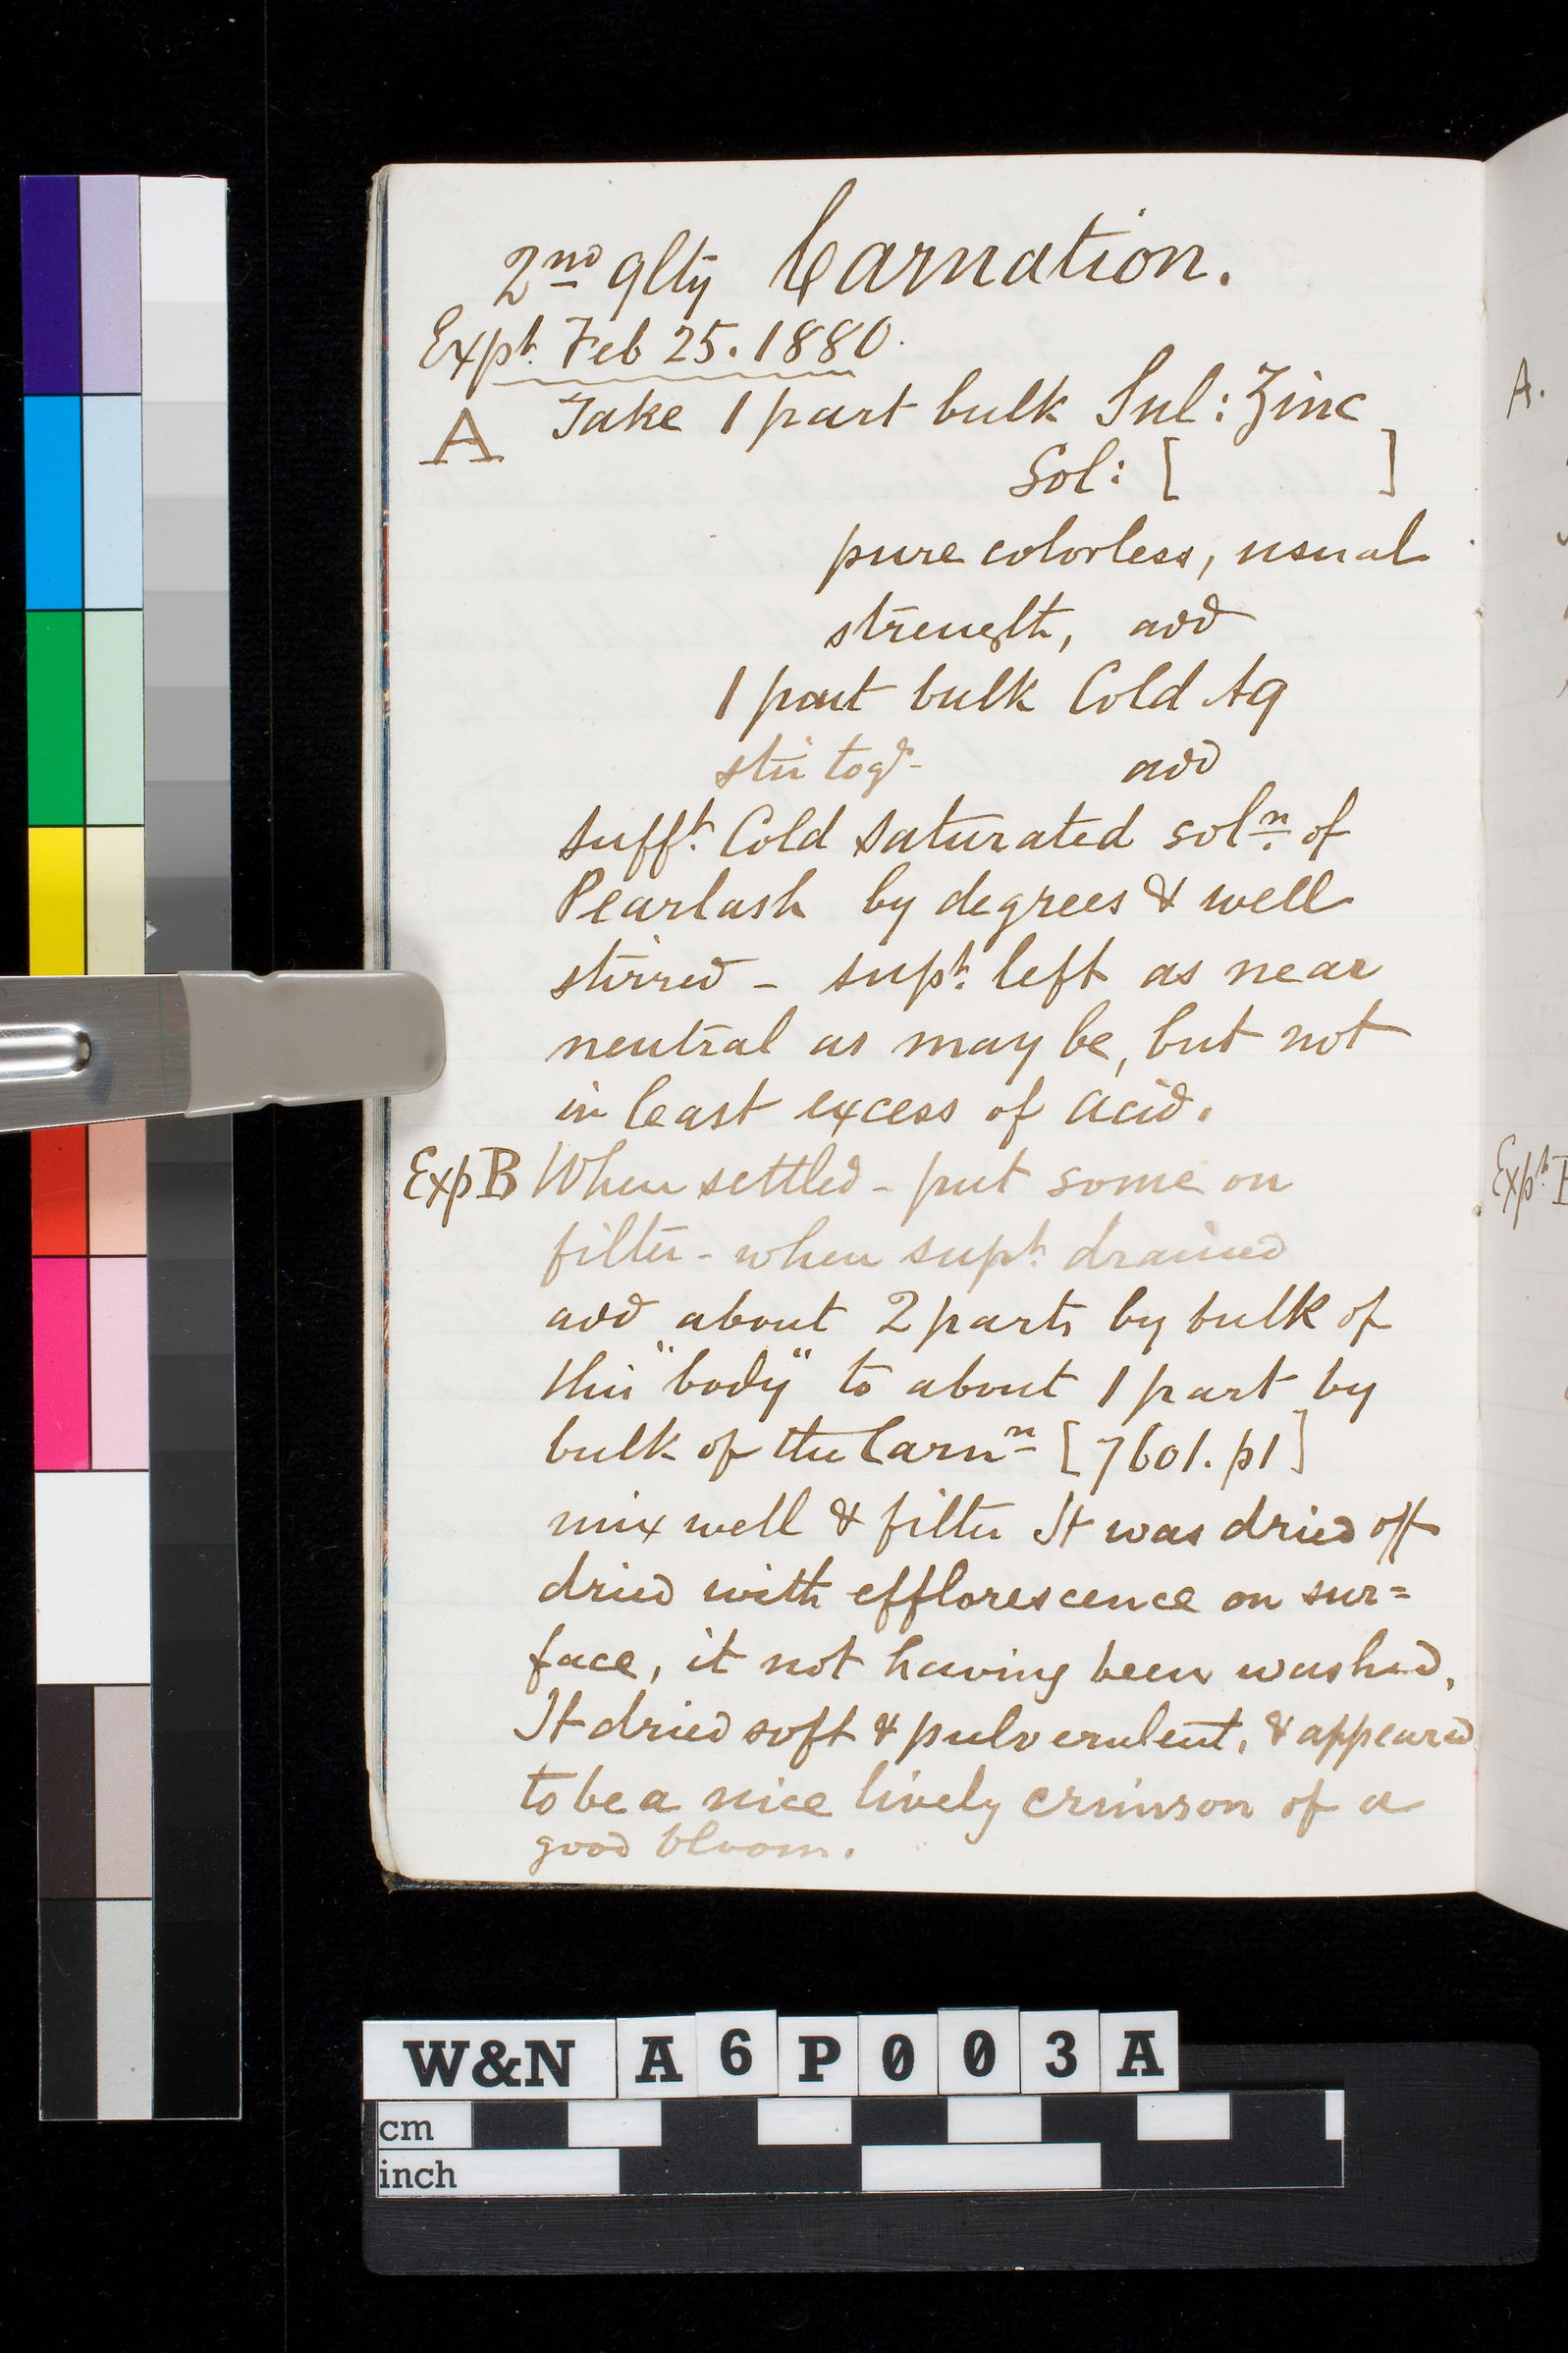 2nd qlty Carnation.
Expt. Feb 25. 1880.
A Take 1 part bulk Sul: Zinc
Sol: [ ]
pure colorless, usual
strength, add
1 part bulk Cold Aq
stir togr. add
sufft. Cold saturated soln. of
Pearlash by degrees & well
stirred - supt. left as near
neutral as may be, but not
in least excess of acid.
Exp B When settled - put some on
filter - when supt. drained
add about 2 parts by bulk of
this "body" to about 1 part by
bulk of the Carnn [7601. p1]
mix well & filter It was dried off
dried with efflorescence on sur=
face, it not having been washed.
It dried soft & pulverulent, & appeared
to be a nice lively crimson of a
good bloom.
A.
Expt.
W&N A6P003A
cm
inch